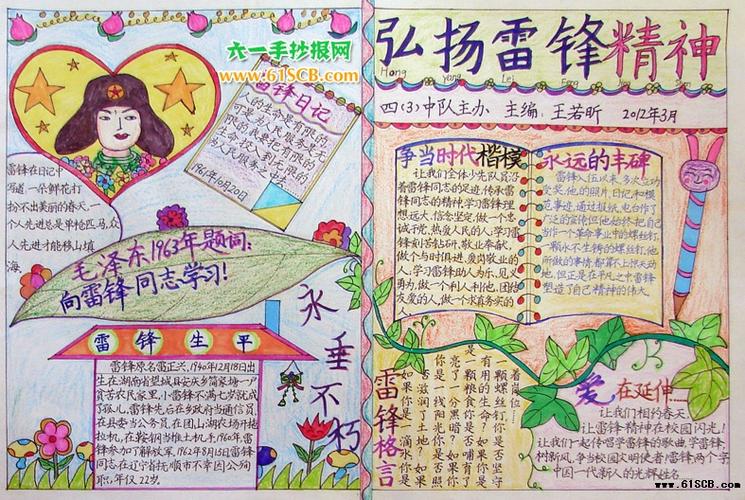 六一手抄报网
www.61SCB.com
雷锋日记
人的生命是有限的
可是为人民服务是无
限的我要把有限的
生命投入到无限的
为人民服务之中去
1961年10月20日
雷锋在日记中
写道:一朵鲜花打
扮不出美丽的春天,一
个人先进总是单枪匹马,众
人先进才能移山填
海。
毛泽东1963年题词:
向雷锋同志学习!
永垂不朽
雷锋生平
雷锋原名雷正兴,1940年12月18日出
生在湖南省望城县安庆乡简家塘一户
贫苦农民家里,小雷锋不满七岁就成
了孤儿,雷锋先后在乡政府当通信员,
在县委当公务员,在团山湖农场开拖
拉机,在鞍钢当推土机手,1960年,雷
锋参加了解放军,1962年8月15日雷锋
同志在辽宁省抚顺市不幸因公殉
职,年仅22岁。
弘扬雷锋精神
Hong yang Lei Feng Jing Shen
四(3)中队主办 主编:王若昕 2012年3月
争当时代楷模
让我们全体少先队员沿
着雷锋同志的足迹,传承雷
锋同志的精神学习雷锋理
想远大,信念坚定,做一个忠
诚于党,热爱人民的人;学习雷
锋刻苦钻研,敬业奉献,
做个与时俱进,爱岗敬业的
人;学习雷锋助人为乐,见义
勇为,做一个利人利他,团结
友爱的人,做一个求真务实的
人。
永远的丰碑
雷锋入伍以来,多次立功
受奖,他的照片、日记和模
范事迹,通过报纸,电台作了
广泛的宣传但他始终把自
己当作一个革命事业中的螺丝钉,
一颗永不生锈的螺丝钉,他
所做的事情,都算不上惊天动
地,但正是在平凡之中,雷锋
塑造了自己精神的伟大。
雷锋格言
如果你是一滴水,你是
否滋润了一寸土地?如果
你是一线阳光,你是否照
亮了一分黑暗?如果你是
一颗粮食,你是否哺育了
有用的生命?如果你是
一颗最小的螺丝钉,你是否坚守
着岗位…
爱在延伸……
让我们相约春天
让雷锋精神在校园闪光!
让我们一起传唱学雷锋的歌曲,学雷锋,
树新风,争当校园文明使者!雷锋两个字,
中国一代新人的光辉姓名。
www.61SCB.com